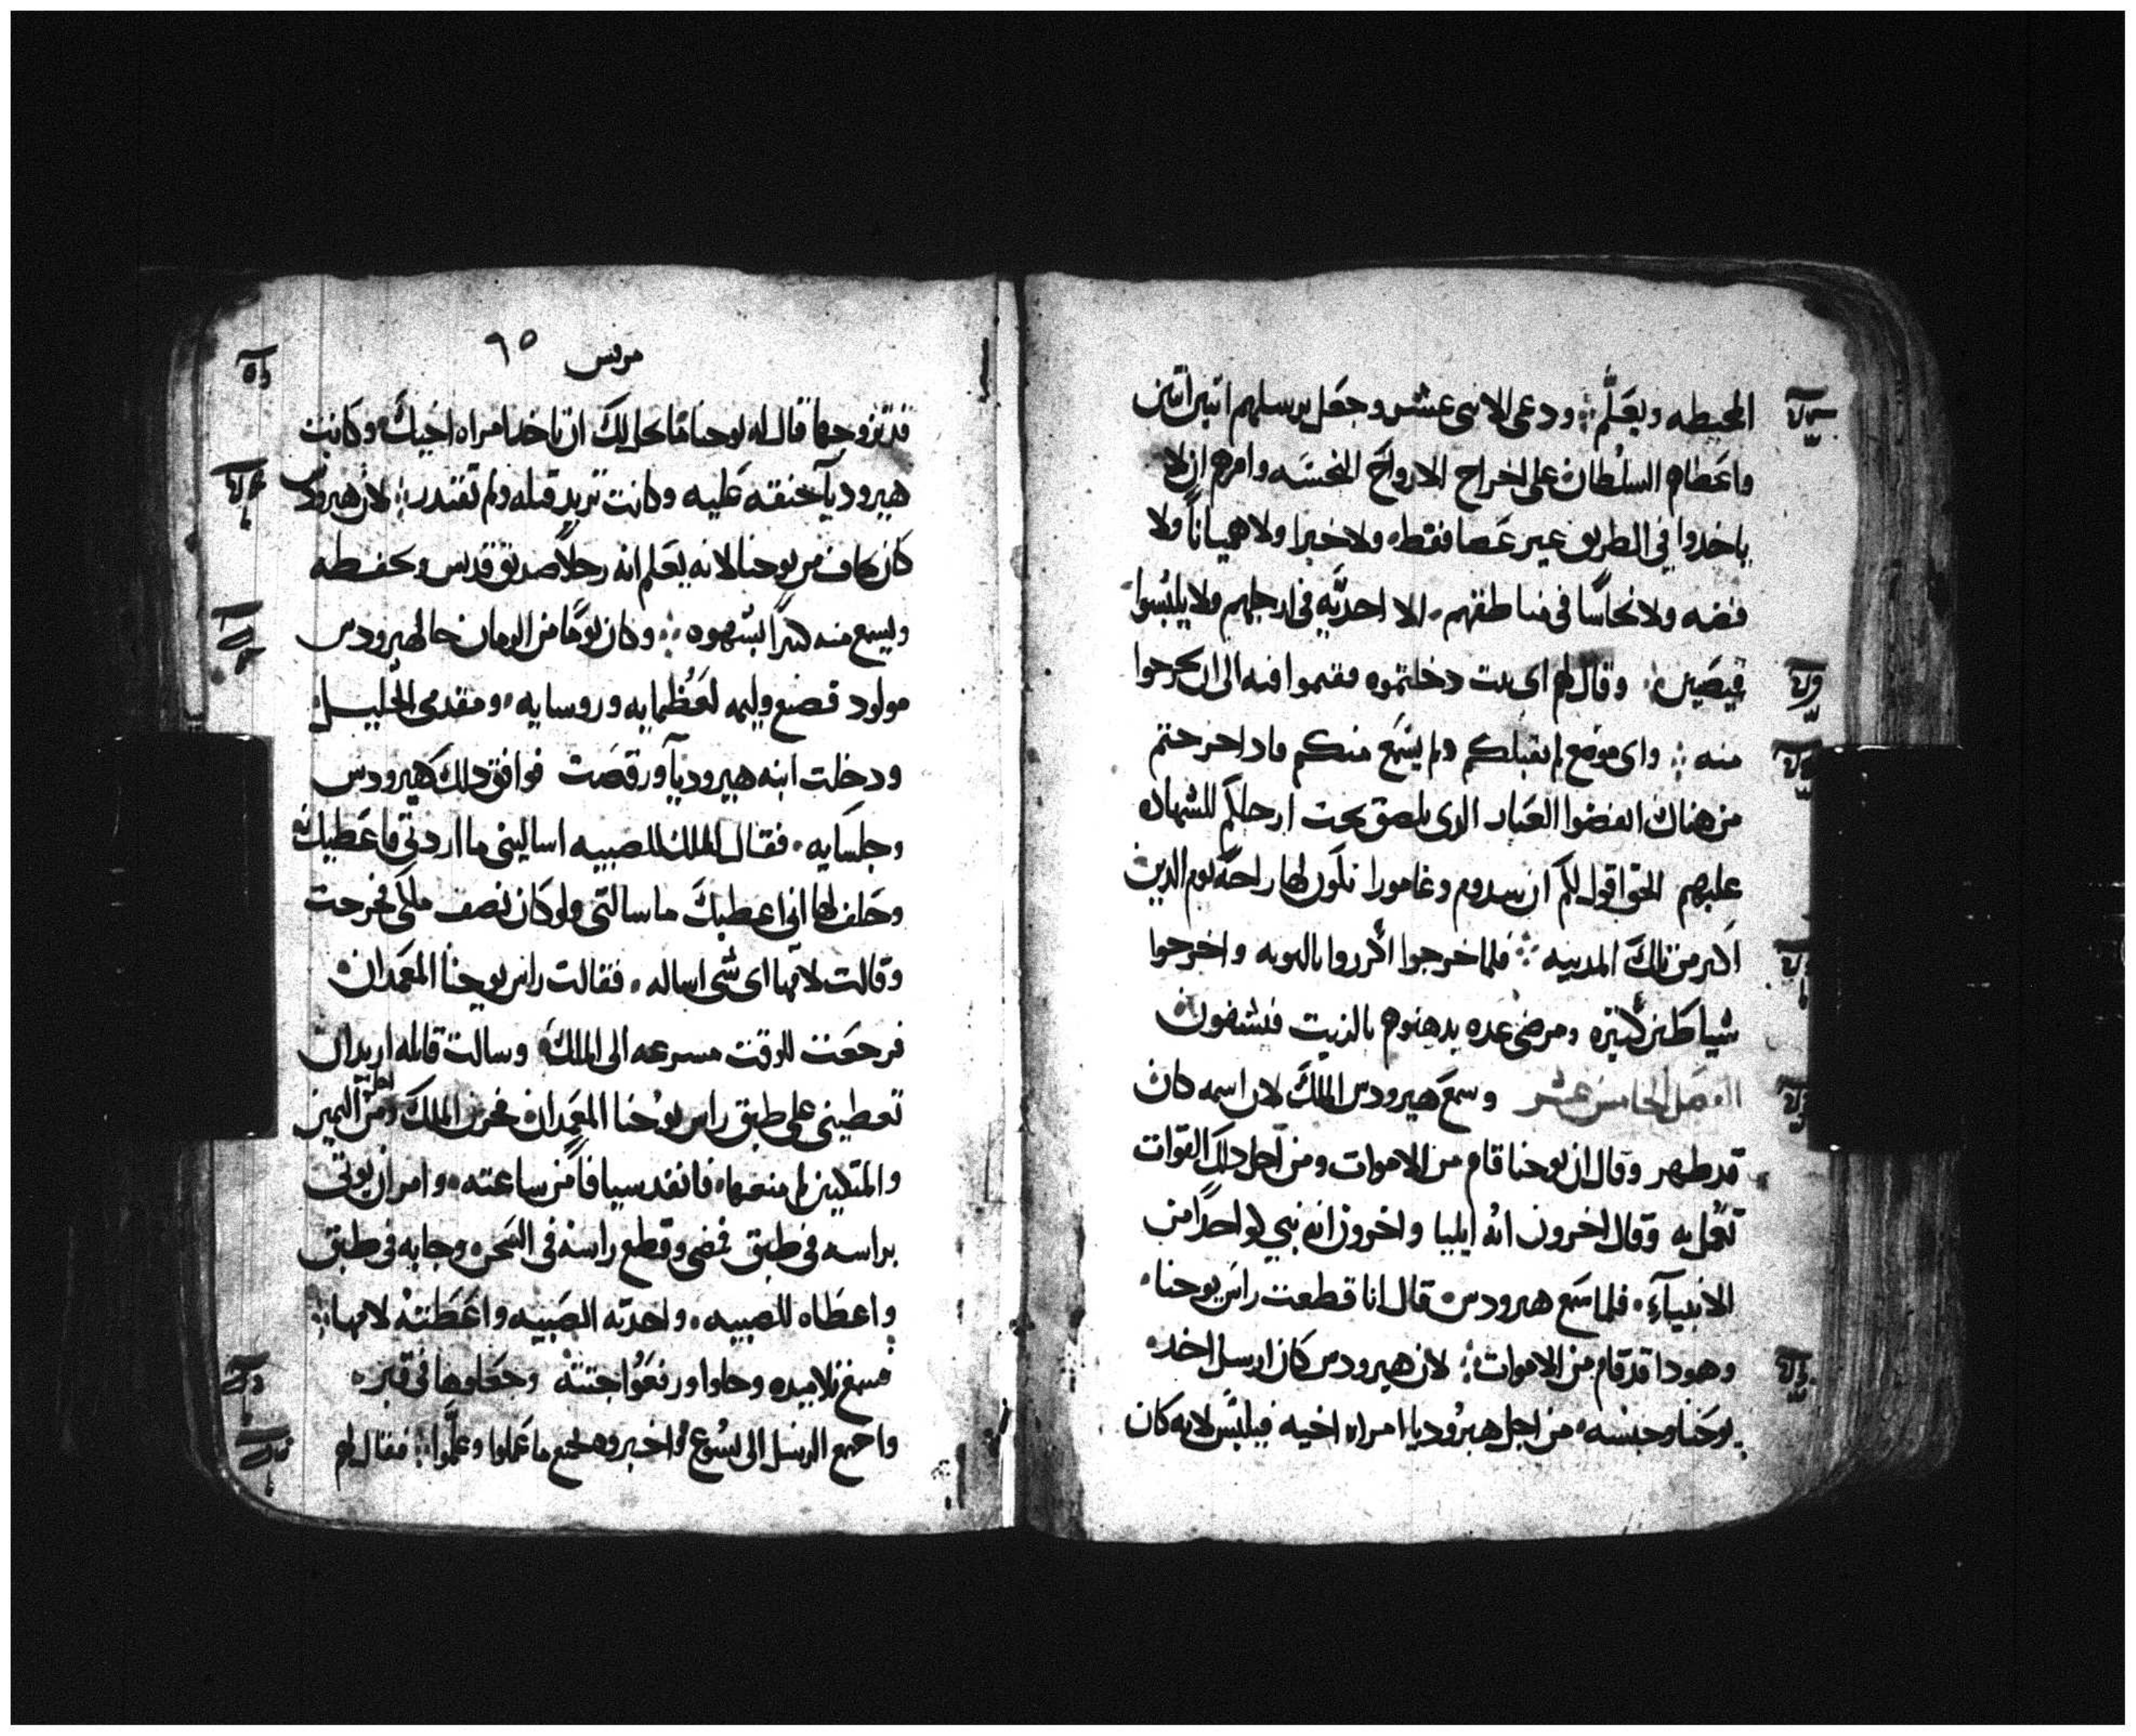 المحيطه ويعَلّم ؞ ودعى الاثنى عشر وجعَل يرسلهم اثنين اثنين
واعَطاهم السلْطان على اخراج الارواحَ النجسَه وامرهم ان لا
ياخدوا في الطريق غير عَصا فقط، ولا خبزا ولا هميانًا ولا
فضه ولا نحاسًا في مناطقهم، الا احديَّه في ارجلهم ولا يلبُسوا
قيصَين ؞ وقال لهم اى بيت دخلتموه فقيموا فيه الى ان تخرجوا
منه ؞ واى موضع لم يقبلكم ولم يسْمَع منكم فادا خرجتم
من هناك انفضوا الغَبار الدى يلصق تحت ارجلكم للشهاده
عليهم الحق اقول لكم ان سدوم وغامورا تكون لها راحهً يوم الدين
اَكتر من تلك المدينه ؞ فلما خرجوا اكْرروا بالتوبه واخرجوا
شياطين كْتيره ومرضى عده يدهنوهم بالزيت فيشفون
الفصل الخامس عشر وسمَع هيرودس الملكَ لان اسمه كان
قد ظهر وقال ان يوحنا قام من الاموات ومن اجل دلكَ القوات
تعْمل به وقال اخرون انه ايليا واخرون انه نبي او احدًا من
الانبياَء، فلما سَمع هيرودس قال انا قطعت راسَ يوحنا،
وهودا قد قام من الاموات ؞ لان هيرودس كان ارسل اخد
يوحَنا وحبسه، من اجل هيرُوديا امراه اخيه فيلبُس لانه كان
مرقس ٦٥
قد تزوجها فقال له يوحنا ما يحل لكَ ان تاخد امراه اخيكَ وكانت
هيروديآ حنقه عَليه وكانت تريد قتله ولم تقتدر ؞ لان هيرودس
كان يخاف من يوحنا لانه يعَلم انه رجلًا صديق قديس ويحفطه
ويسمع منه كثيرًا بشهوه ؞ وكان يومًا من الزمان حا لهيرودس
مولود فصنع وليمه لعَظُمايه وروسايه، ومقدمى الجليل
ودخلت ابنه هيروديآ ورقصَت فوافق دلك هيرودس
وجلسَايه، فقال الملك للصبيه اساليني ما اردتي فاعَطيك
وحَلف لها اني اعطيكَ ما سالتي ولو كان نصف ملكي فخرجت
وقالت لامها اى شى اساله، فقالت راس يوحنا المعمدان
فرجعَت للوقت مسرعه الى الملكَ، وسالت قايله اريد ان
تعطيني على طبق راس يوُحنا المعَمدان فحزن الملكَ ومن اجل اليمين
والمتكيين لم يمنعها، فانفد سيافًا من ساعته، وامر ان يوتى
براسه في طبق فمضى وقطع راسه في السَجن وجا به في طبق
واعطَاه للصبيه، واخدته الصَبيه واعَطَتهْ لامها ؞
فسمع تلاميده وجاوا ورفعَوُا جتتهْ وجعَلوها في قبر،
واجتمع الرسل الى يسُوع واخبروه بجميع ما عَملوا وعَلّموا ؞ فقال لهم